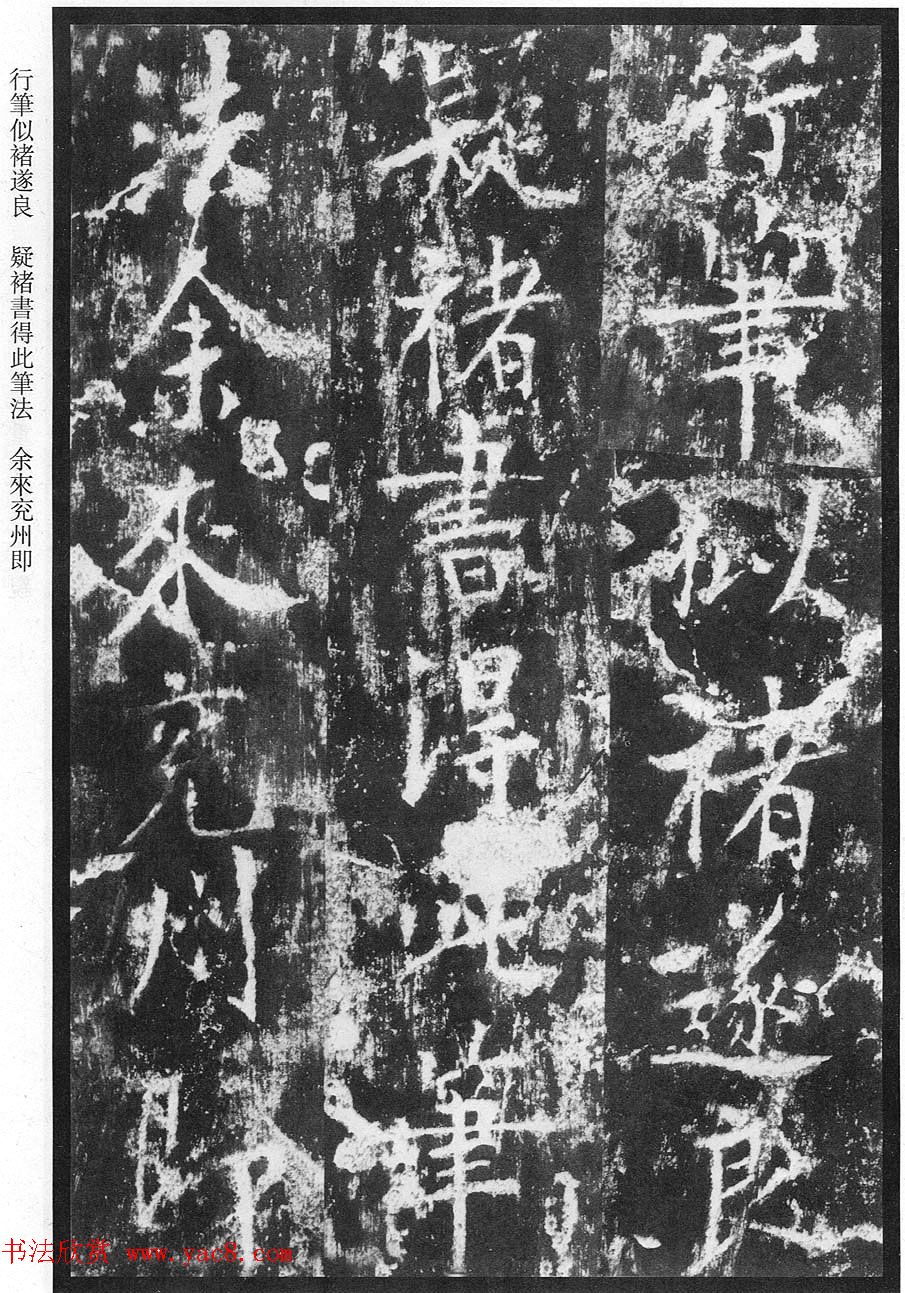 行筆似褚遂良
疑褚書得此筆
法余來兖州即
行筆似褚遂良　疑褚書得此筆法　余來兖州即
书法欣赏 www.yac8.com